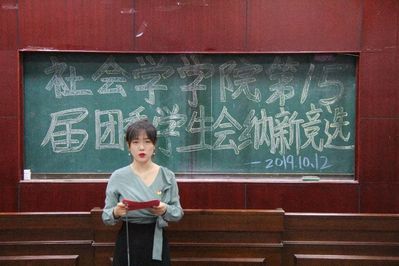 社会学学院第15
届团委学生会纳新竞选
-2019.10.12